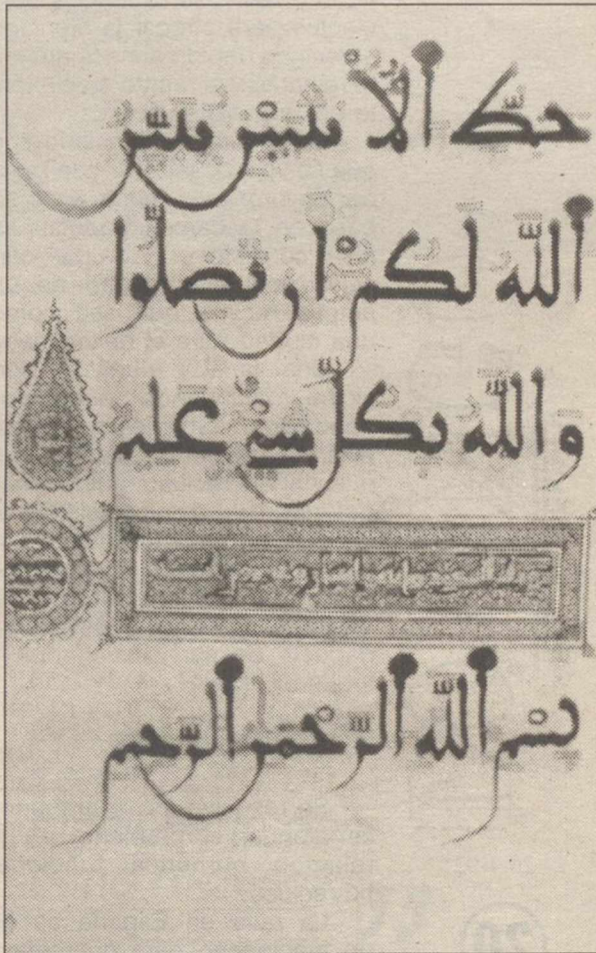 حظّ الأنثيين يبيّن
الله لكم أن تضلّوا
والله بكلّ شيء عليم
بسم الله الرّحمن الرّحيم